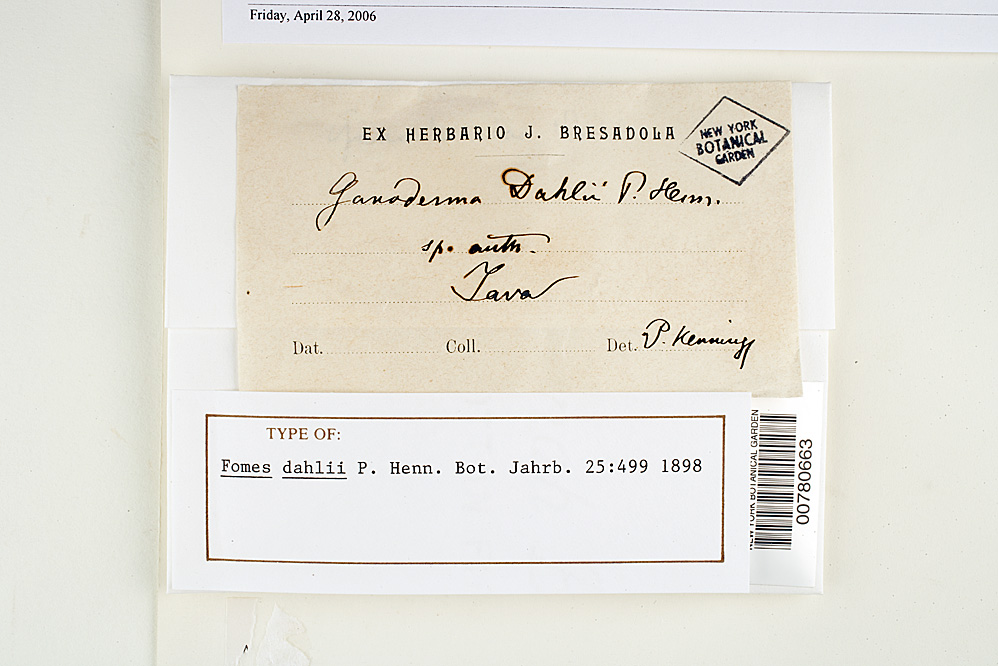 Friday, April 28, 2006
EX HERBARIO J. BRESADOLA
NEW YORK
BOTANICAL
GARDEN
Ganoderma Dahlii P. Henn.
sp. auth.
Java
Dat. Coll. Det. P. Hennings
TYPE OF:
Fomes dahlii P. Henn. Bot. Jahrb. 25:499 1898
NEW YORK BOTANICAL GARDEN
00780663